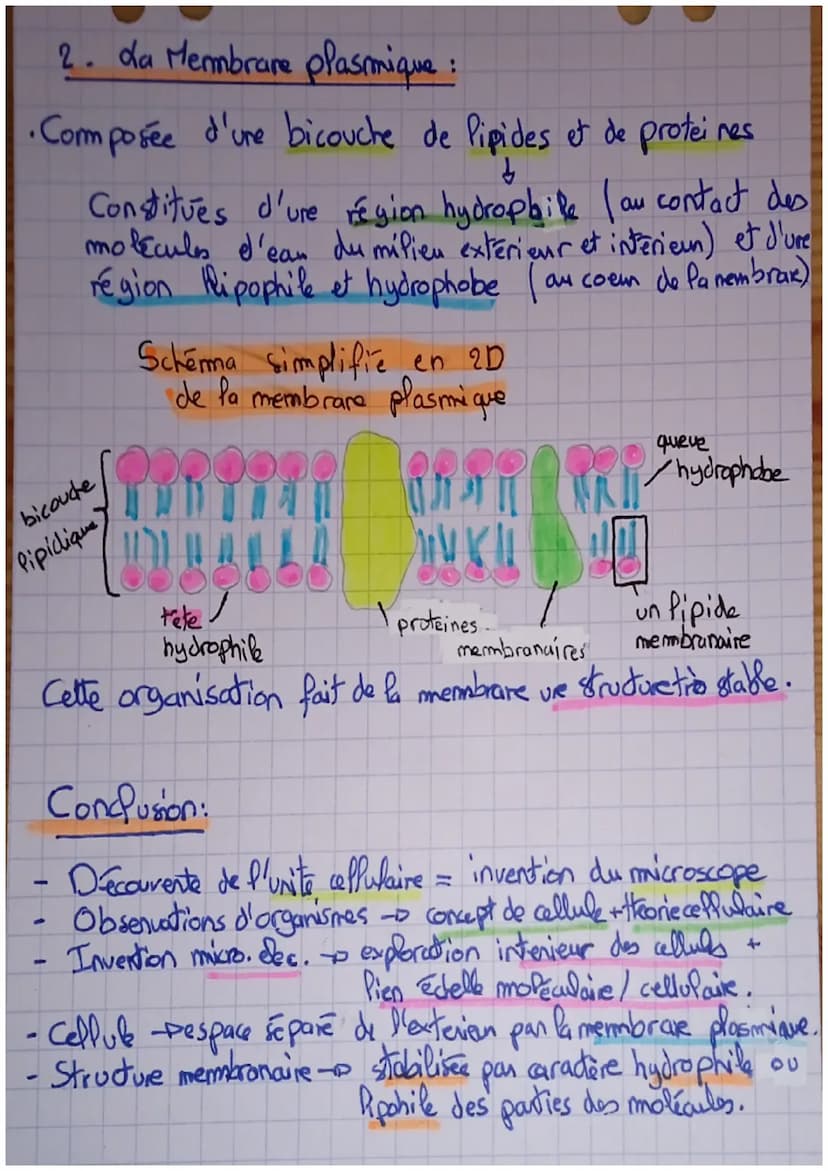 2. La Membrane plasmique :
• Composée d'une bicouche de lipides et de protéines
↓
Constitués d'une région hydrophile (au contact des
molécules d'eau du milieu extérieur et intérieur) et d'une
région lipophile et hydrophobe (au coeur de la membrane)
Schéma simplifié en 2D
de la membrane plasmique
queue
hydrophobe
bicouche
lipidique
tête
hydrophile
protéines
membranaires
un lipide
membranaire
Cette organisation fait de la membrane une structure très stable.
Conclusion:
- Découverte de l'unité cellulaire = invention du microscope
- Observations d'organismes → concept de cellule + théorie cellulaire
- Invention micro. élec. → exploration intérieur des cellules +
lien échelle moléculaire / cellulaire.
- Cellule → espace séparé de l'extérieur par la membrane plasmique.
- Structure membranaire → stabilisée par caractère hydrophile ou
lipohile des parties des molécules.